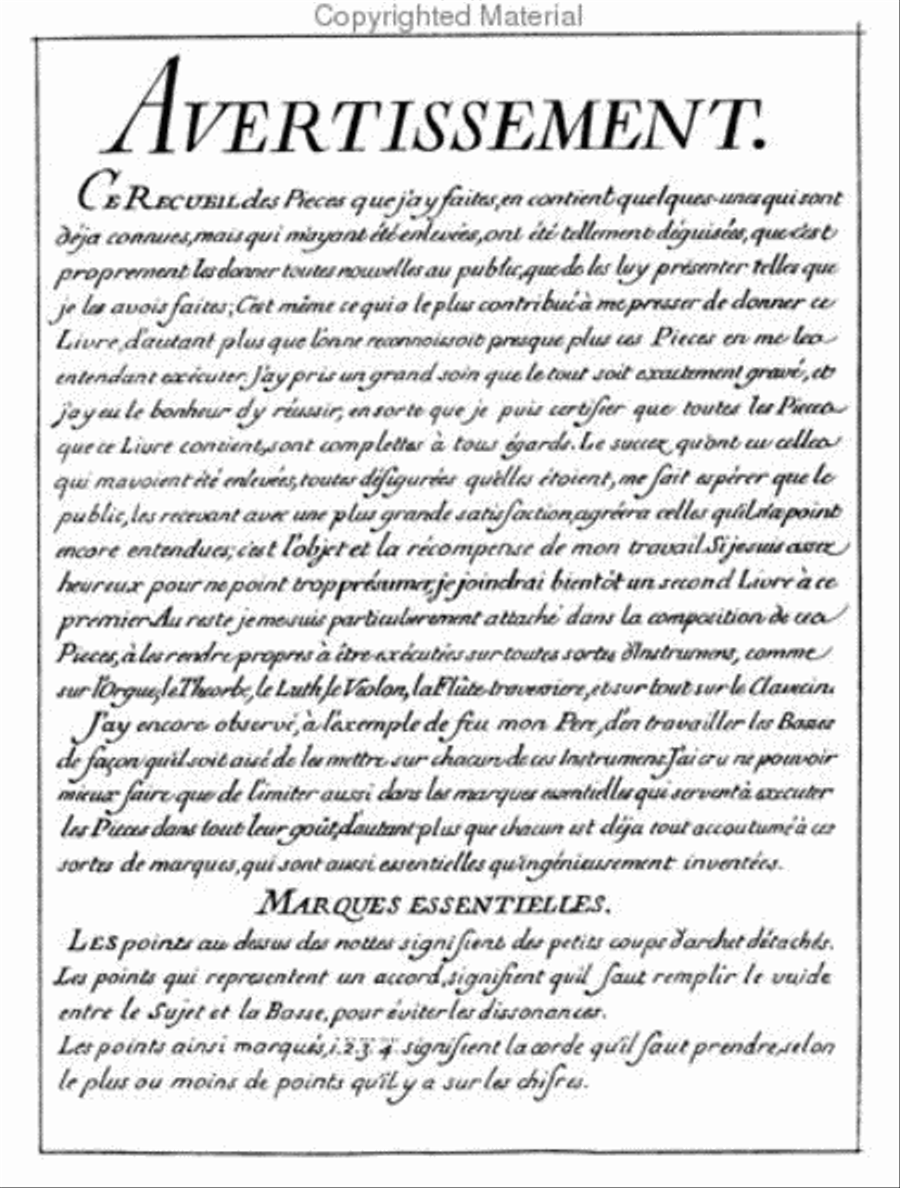 Copyrighted Material
AVERTISSEMENT.
CE RECUEIL des Pieces que j'ay faites, en contient quelques-unes qui sont
déja connues, mais qui m'ayant été enlevées, ont été tellement déguisées, que c'est
proprement les donner toutes nouvelles au public, que de les luy présenter telles que
je les avois faites; C'est même ce qui a le plus contribué à me presser de donner ce
Livre, d'autant plus que l'on ne reconnoissoit presque plus ces Pieces en me les
entendant exécuter. J'ay pris un grand soin que le tout soit exactement gravé, et
j'ay eu le bonheur d'y réussir, en sorte que je puis certifier que toutes les Pieces
que ce Livre contient, sont complettes à tous égards. Le succez qu'ont eu celles
qui m'avoient été enlevées, toutes défigurées qu'elles étoient, me fait espérer que le
public, les recevant avec une plus grande satisfaction, agréera celles qu'il n'a point
encore entendues; c'est l'objet et la récompense de mon travail. Si je suis assez
heureux pour ne point trop présumer, je joindrai bientôt un second Livre à ce
premier. Au reste je me suis particulierement attaché dans la composition de ces
Pieces, à les rendre propres à être exécutées sur toutes sortes d'Instrumens, comme
sur l'Orgue, le Theorbe, le Luth, le Violon, la Flûte traversiere, et sur tout sur le Clavecin.
J'ay encore observé, à l'exemple de feu mon Pere, d'en travailler les Basses
de façon qu'il soit aisé de les mettre sur chacun de ces Instrumens. J'ai cru ne pouvoir
mieux faire que de l'imiter aussi dans les marques essentielles qui servent à executer
les Pieces dans tout leur goût, d'autant plus que chacun est déja tout accoutumé à ces
sortes de marques, qui sont aussi essentielles qu'ingénieusement inventées.
MARQUES ESSENTIELLES.
LES points au dessus des nottes signifient des petits coups d'archet détachés.
Les points qui representent un accord, signifient qu'il faut remplir le vuide
entre le Sujet et la Basse, pour éviter les dissonances.
Les points ainsi marqués, 1. 2. 3. 4. signifient la corde qu'il faut prendre, selon
le plus ou moins de points qu'il y a sur les chifres.